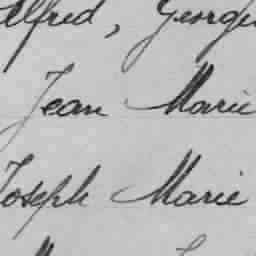 Alfred, George
Jean Marie
Joseph Marie